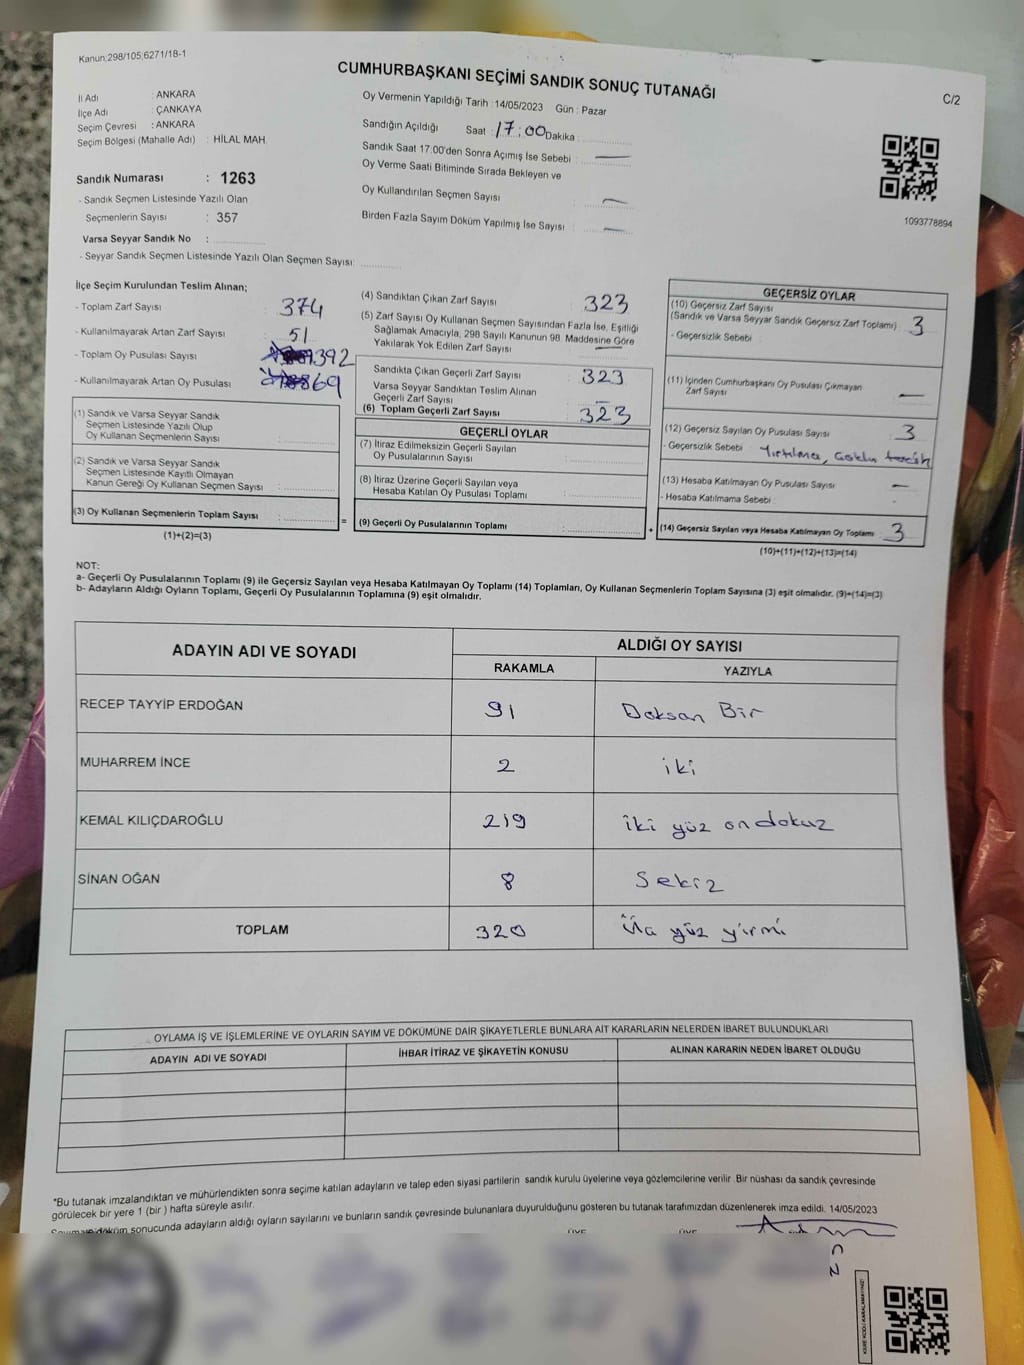 Kanun;298/105;6271/18-1
CUMHURBAŞKANI SEÇİMİ SANDIK SONUÇ TUTANAĞI
C/2
İl Adı : ANKARA
İlçe Adı : ÇANKAYA
Seçim Çevresi : ANKARA
Seçim Bölgesi (Mahalle Adı) : HİLAL MAH.
Oy Vermenin Yapıldığı Tarih : 14/05/2023 Gün : Pazar
Sandığın Açıldığı Saat : 17:00 Dakika :
Sandık Saat 17:00'den Sonra Açımış İse Sebebi : —
Oy Verme Saati Bitiminde Sırada Bekleyen ve
Oy Kullandırılan Seçmen Sayısı : —
Birden Fazla Sayım Döküm Yapılmış İse Sayısı : —
1093778894
Sandık Numarası : 1263
- Sandık Seçmen Listesinde Yazılı Olan
Seçmenlerin Sayısı : 357
Varsa Seyyar Sandık No :
- Seyyar Sandık Seçmen Listesinde Yazılı Olan Seçmen Sayısı:
İlçe Seçim Kurulundan Teslim Alınan;
- Toplam Zarf Sayısı : 374
- Kullanılmayarak Artan Zarf Sayısı : 51
- Toplam Oy Pusulası Sayısı : 392
- Kullanılmayarak Artan Oy Pusulası : 69
(1) Sandık ve Varsa Seyyar Sandık
Seçmen Listesinde Yazılı Olup
Oy Kullanan Seçmenlerin Sayısı :
(2) Sandık ve Varsa Seyyar Sandık
Seçmen Listesinde Kayıtlı Olmayan
Kanun Gereği Oy Kullanan Seçmen Sayısı :
(3) Oy Kullanan Seçmenlerin Toplam Sayısı :
(1)+(2)=(3)
=
(4) Sandıktan Çıkan Zarf Sayısı : 323
(5) Zarf Sayısı Oy Kullanan Seçmen Sayısından Fazla İse, Eşitliği
Sağlamak Amacıyla, 298 Sayılı Kanunun 98. Maddesine Göre
Yakılarak Yok Edilen Zarf Sayısı : —
Sandıkta Çıkan Geçerli Zarf Sayısı : 323
Varsa Seyyar Sandıktan Teslim Alınan
Geçerli Zarf Sayısı : —
(6) Toplam Geçerli Zarf Sayısı : 323
GEÇERLİ OYLAR
(7) İtiraz Edilmeksizin Geçerli Sayılan
Oy Pusulalarının Sayısı :
(8) İtiraz Üzerine Geçerli Sayılan veya
Hesaba Katılan Oy Pusulası Toplamı :
(9) Geçerli Oy Pusulalarının Toplamı :
+
GEÇERSİZ OYLAR
(10) Geçersiz Zarf Sayısı
(Sandık ve Varsa Seyyar Sandık Geçersiz Zarf Toplamı) : 3
- Geçersizlik Sebebi :
(11) İçinden Cumhurbaşkanı Oy Pusulası Çıkmayan
Zarf Sayısı : —
(12) Geçersiz Sayılan Oy Pusulası Sayısı : 3
- Geçersizlik Sebebi : Yırtılma, Çoklu tercih
(13) Hesaba Katılmayan Oy Pusulası Sayısı : —
- Hesaba Katılmama Sebebi :
(14) Geçersiz Sayılan veya Hesaba Katılmayan Oy Toplamı : 3
(10)+(11)+(12)+(13)=(14)
NOT:
a- Geçerli Oy Pusulalarının Toplamı (9) ile Geçersiz Sayılan veya Hesaba Katılmayan Oy Toplamı (14) Toplamları, Oy Kullanan Seçmenlerin Toplam Sayısına (3) eşit olmalıdır. (9)+(14)=(3)
b- Adayların Aldığı Oyların Toplamı, Geçerli Oy Pusulalarının Toplamına (9) eşit olmalıdır.
ADAYIN ADI VE SOYADI
ALDIĞI OY SAYISI
RAKAMLA YAZIYLA
RECEP TAYYİP ERDOĞAN 91 Doksan Bir
MUHARREM İNCE 2 iki
KEMAL KILIÇDAROĞLU 219 iki yüz ondokuz
SİNAN OĞAN 8 Sekiz
TOPLAM 320 Üç yüz yirmi
OYLAMA İŞ VE İŞLEMLERİNE VE OYLARIN SAYIM VE DÖKÜMÜNE DAİR ŞİKAYETLERLE BUNLARA AİT KARARLARIN NELERDEN İBARET BULUNDUKLARI
ADAYIN ADI VE SOYADI İHBAR İTİRAZ VE ŞİKAYETİN KONUSU ALINAN KARARIN NEDEN İBARET OLDUĞU
"Bu tutanak imzalandıktan ve mühürlendikten sonra seçime katılan adayların ve talep eden siyasi partilerin sandık kurulu üyelerine veya gözlemcilerine verilir. Bir nüshası da sandık çevresinde
görülecek bir yere 1 (bir) hafta süreyle asılır.
döküm sonucunda adayların aldığı oyların sayılarını ve bunların sandık çevresinde bulunanlara duyurulduğunu gösteren bu tutanak tarafımızdan düzenlenerek imza edildi. 14/05/2023
ÜYE ÜYE